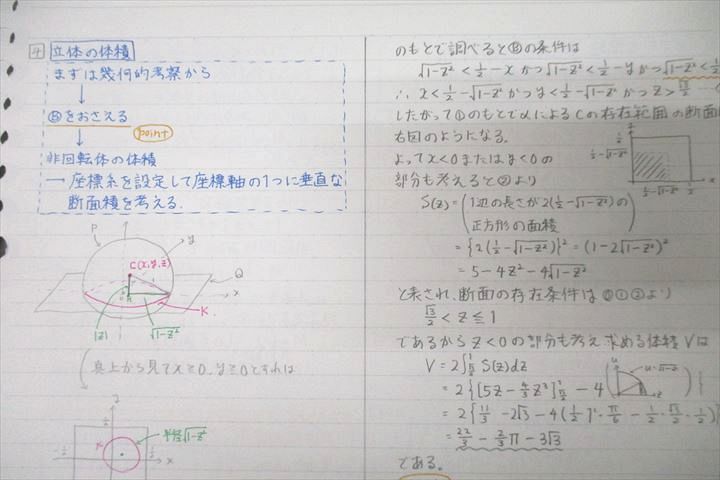 4 立体の体積
まずは幾何的考察から
↓
Ⓑをおさえる
point
↓
非回転体の体積
→ 座標系を設定して座標軸の1つに垂直な
断面積を考える.
P
y
C(x,y,z)
Q
x
K
|z|
√1-z²
真上から見てx≧0, y≧0とすれば
y
1/2
K
半径√1-z²
-1/2
1/2
x
のもとで調べるとⒷの条件は
√1-z² < 1/2 - x かつ √1-z² < 1/2 - y かつ √1-z² < 1/2
∴ x < 1/2 - √1-z² かつ y < 1/2 - √1-z² かつ z > √3/2
したがって①のもとでαによるCの存在範囲の断面は
右図のようになる.
よってx<0またはy<0の
部分も考えると②より
1/2
1/2-√1-z²
1/2-√1-z²
1/2
x
S(z) = (1辺の長さが2(1/2-√1-z²)の
正方形の面積)
= {2(1/2-√1-z²)}² = (1-2√1-z²)²
= 5-4z²-4√1-z²
と表され、断面の存在条件は①②より
√3/2 < z ≦ 1
であるからz<0の部分も考え求める体積Vは
V = 2∫ S(z)dz
= 2{[5z-4/3z³] - 4
u
u=√1-z²
z
= 2{11/3 - 2√3 - 4(1/2・1²・π/6 - 1/2・√3/2・1/2)}
= 22/3 - 2/3π - 3√3
である.